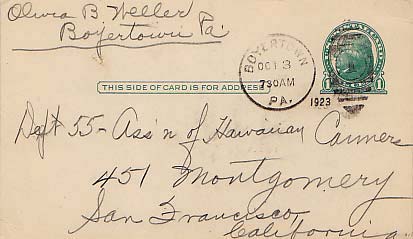 Olivia B Weller
Boyertown Pa.
BOYERTOWN
OCT 3
730AM
1923
PA.
THIS SIDE OF CARD IS FOR ADDRESS
1 1
Dept 55 - Ass'n of Hawaiian Canners
451 Montgomery
San Francisco,
California.